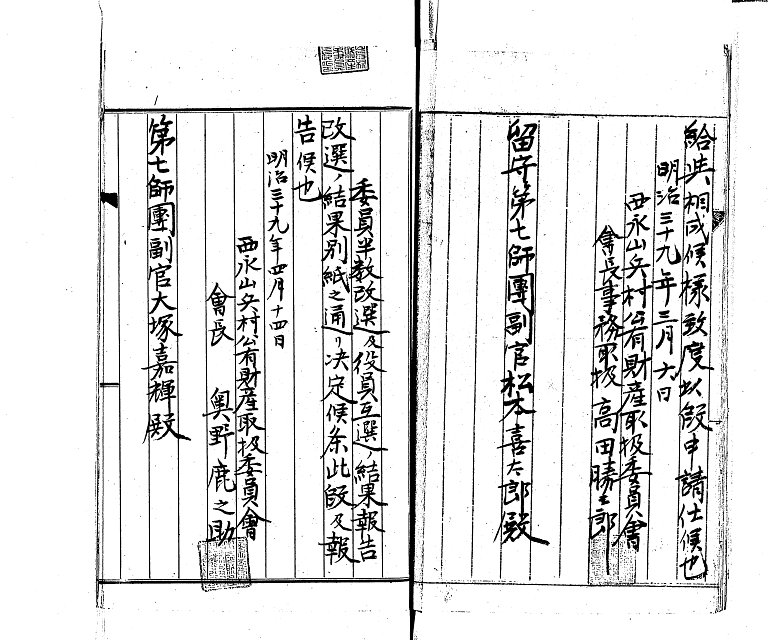 給與相成候樣致度此段申請仕候也
明治三十九年三月六日
西永山兵村公有財産取扱委員會
會長事務取扱 高田勝三郎
留守第七師團副官松本喜太郎殿
委員半數改選及役員互選ノ結果報告
改選ノ結果別紙之通リ決定候条此段及報
告候也
明治三十九年四月十四日
西永山兵村公有財産取扱委員會
會長 奥野鹿之助
第七師團副官大塚嘉輝殿